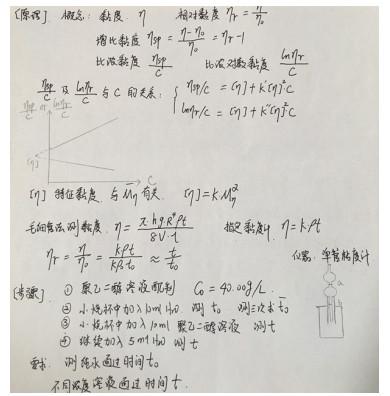 [原理] 概念: 黏度 η 相对黏度 ηr = η/η0
增比黏度 ηsp = (η-η0)/η0 = ηr-1
比浓黏度 ηsp/C 比浓对数黏度 lnηr/C
ηsp/C 及 lnηr/C 与 C 的关系: { ηsp/C = [η] + K'[η]²C
lnηr/C = [η] + K''[η]²C
ηsp/C or lnηr/C
[η]
C
[η] 特征黏度, 与 M̄η 有关. [η] = K M̄η^α
毛细管法测黏度. η = π·hg·R⁴ρt / 8V·l 指定黏度计, η = kρt
ηr = η/η0 = kρt/kρ0t0 ≈ t/t0 仪器: 单管黏度计
a
[步骤] ① 聚乙二醇溶液配制 C0 = 40.00g/L.
② 小烧杯中加入10ml H2O 测 t0 测三次求 t̄0
③ 小烧杯中加入10ml 聚乙二醇溶液 测 t
④ 继续加入 5ml H2O 测 t
要求: 测纯水通过时间 t0
不同浓度溶液通过时间 t.